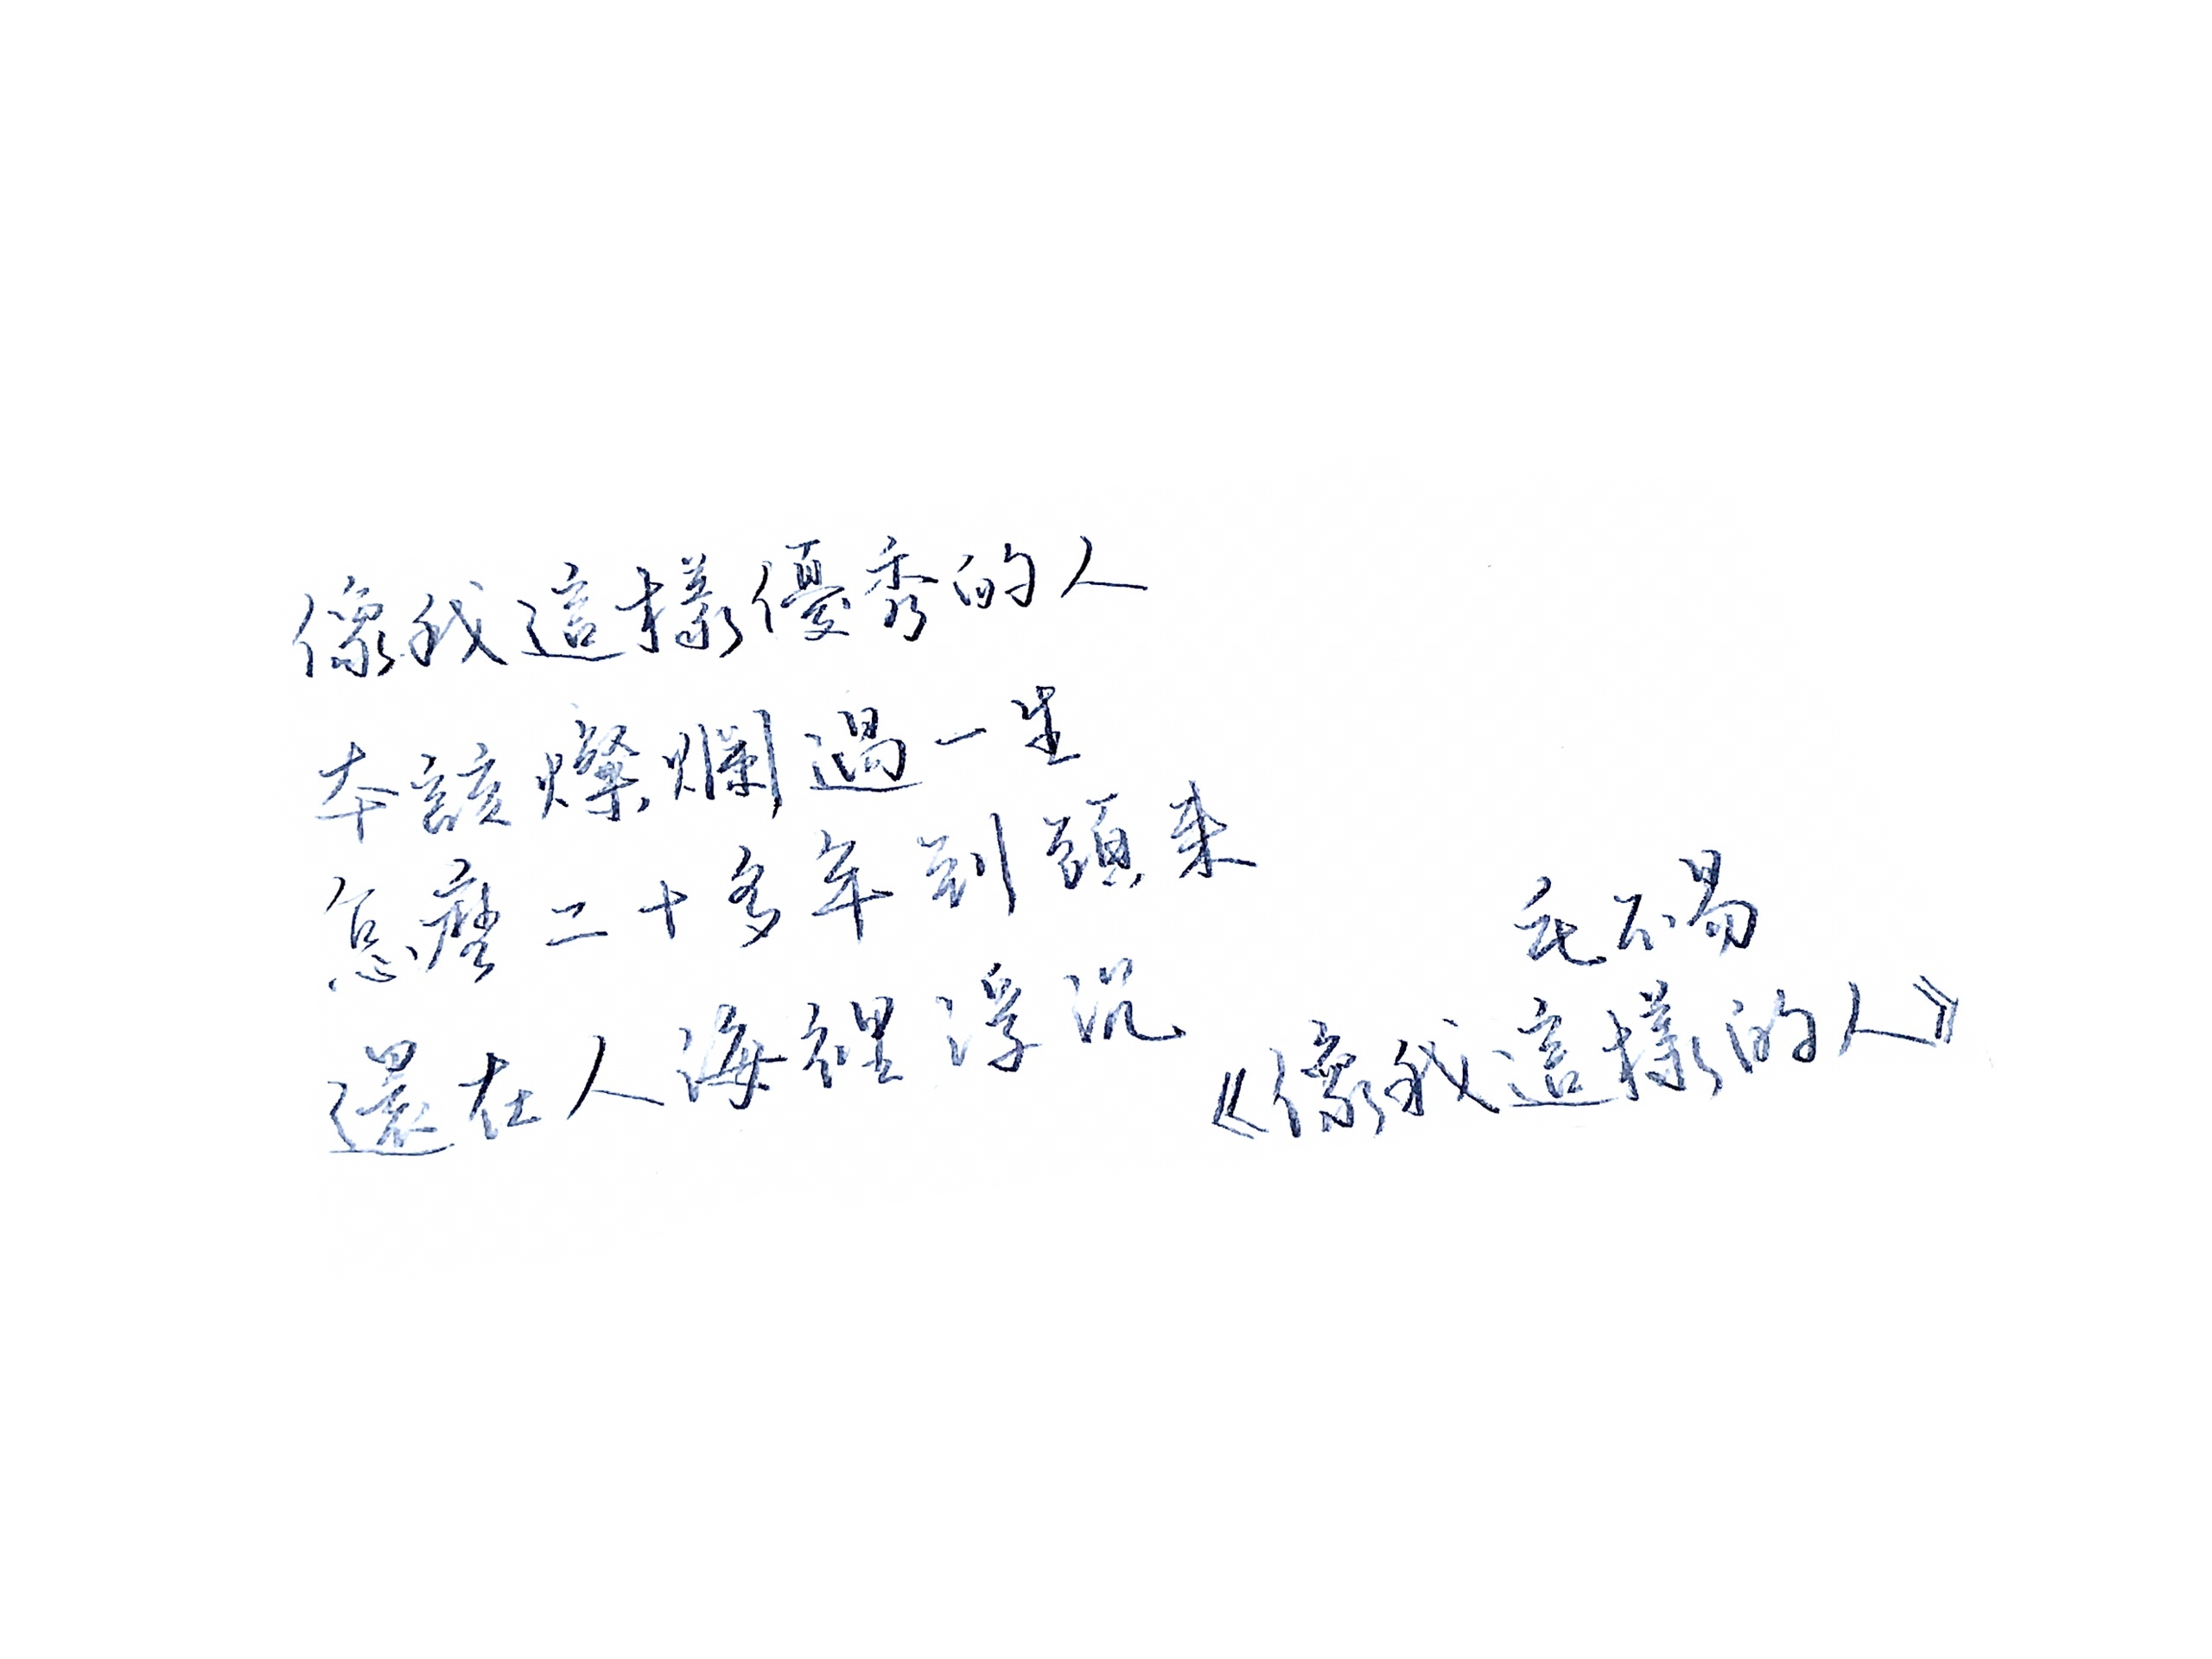 像我這樣優秀的人
本該燦爛過一生
怎麼二十多年到頭來
還在人海裡浮沉
毛不易
《像我這樣的人》